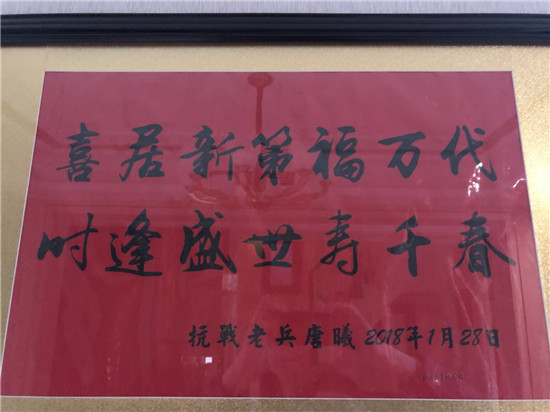 喜居新第福万代
时逢盛世寿千春
抗戰老兵唐曦2018年1月28日